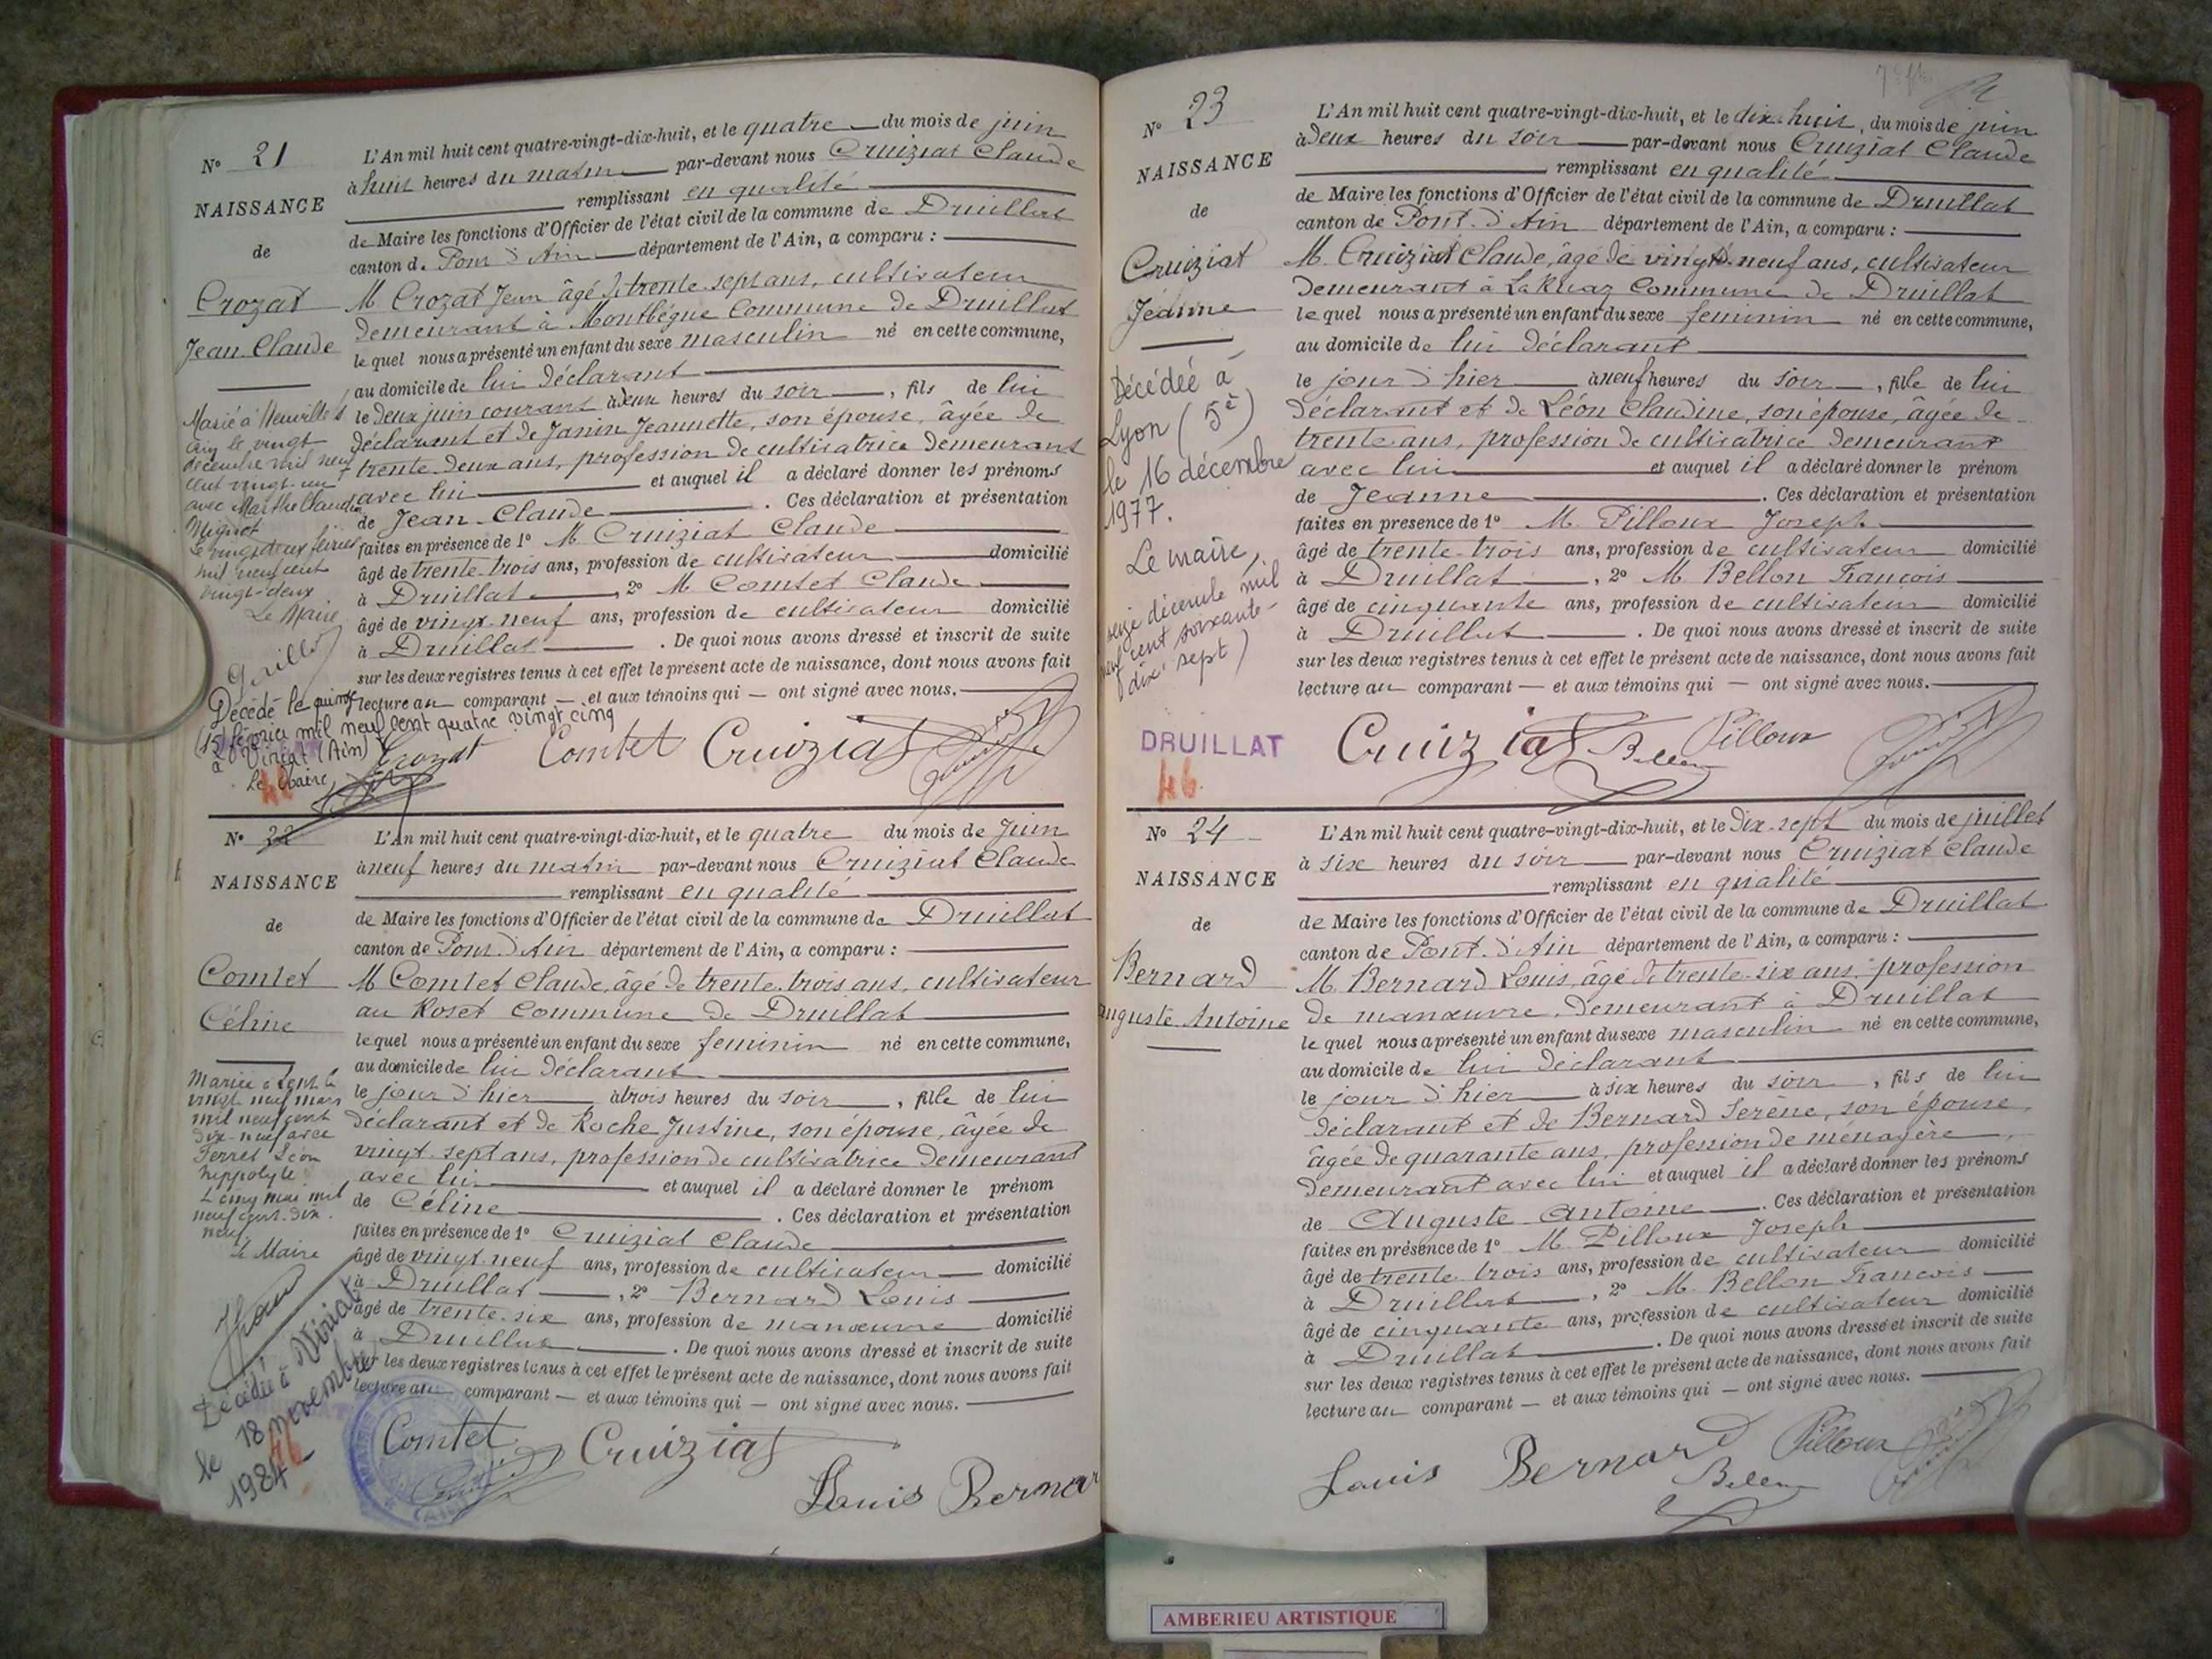 N° 21
NAISSANCE
de
Crozat
Jean Claude
Marié à Neuville s
Ain le vingt
décembre mil neuf
cent vingt-un
avec Marthe Claudia
Mignot
Le vingt deux février
mil neuf cent
vingt-deux
Le Maire
Décédé le quinze
(15) février mil neuf cent quatre vingt cinq
à Viriat (Ain)
Le Maire
46
L'An mil huit cent quatre-vingt-dix-huit, et le quatre du mois de juin
à huit heures du matin par-devant nous Cruiziat Claude
remplissant en qualité
de Maire les fonctions d'Officier de l'état civil de la commune de Druillat
canton de Pont d'Ain département de l'Ain, a comparu :
M Crozat Jean âgé de trente sept ans, cultivateur
demeurant à Montbègue Commune de Druillat
lequel nous a présenté un enfant du sexe masculin né en cette commune,
au domicile de lui déclarant
le deux juin courant à deux heures du soir, fils de lui
déclarant et de Janin Jeannette, son épouse, âgée de
trente deux ans, profession de cultivatrice demeurant
avec lui et auquel il a déclaré donner les prénoms
de Jean-Claude. Ces déclaration et présentation
faites en présence de 1° M Cruiziat Claude
âgé de trente-trois ans, profession de cultivateur domicilié
à Druillat, 2° M Comtet Claude
âgé de vingt-neuf ans, profession de cultivateur domicilié
à Druillat. De quoi nous avons dressé et inscrit de suite
sur les deux registres tenus à cet effet le présent acte de naissance, dont nous avons fait
lecture au comparant — et aux témoins qui — ont signé avec nous.
Crozat Comtet Cruiziat
N° 22
NAISSANCE
de
Comtet
Céline
Mariée à Lent le
vingt neuf mars
mil neuf cent
dix-neuf avec
Ferret Léon
hippolyte
L cinq mai mil
neuf cent dix
neuf
le Maire
Décédée à Viriat
le 18 novembre
1984
46
L'An mil huit cent quatre-vingt-dix-huit, et le quatre du mois de Juin
à neuf heures du matin par-devant nous Cruiziat Claude
remplissant en qualité
de Maire les fonctions d'Officier de l'état civil de la commune de Druillat
canton de Pont d'Ain département de l'Ain, a comparu :
M Comtet Claude, âgé de trente-trois ans, cultivateur
au Roset Commune de Druillat
lequel nous a présenté un enfant du sexe feminin né en cette commune,
au domicile de lui déclarant
le jour d'hier à trois heures du soir, fille de lui
déclarant et de Roche Justine, son épouse, âgée de
vingt-sept ans, profession de cultivatrice demeurant
avec lui et auquel il a déclaré donner le prénom
de Céline. Ces déclaration et présentation
faites en présence de 1° Cruiziat Claude
âgé de vingt-neuf ans, profession de cultivateur domicilié
à Druillat, 2° Bernard Louis
âgé de trente-six ans, profession de manœuvre domicilié
à Druillat. De quoi nous avons dressé et inscrit de suite
sur les deux registres tenus à cet effet le présent acte de naissance, dont nous avons fait
lecture au comparant — et aux témoins qui — ont signé avec nous.
Comtet Cruiziat
Louis Bernar
N° 23
NAISSANCE
de
Cruiziat
Jeanne
Décédée à
Lyon (5è)
le 16 décembre
1977.
Le maire,
seize décembre mil
neuf cent soixante-
dix sept)
DRUILLAT
46
L'An mil huit cent quatre-vingt-dix-huit, et le dix-huit, du mois de juin
à deux heures du soir par-devant nous Cruiziat Claude
remplissant en qualité
de Maire les fonctions d'Officier de l'état civil de la commune de Druillat
canton de Pont d'Ain département de l'Ain, a comparu :
M. Cruiziat Claude, âgé de vingt-neuf ans, cultivateur
demeurant à La Ruaz Commune de Druillat
lequel nous a présenté un enfant du sexe feminin né en cette commune,
au domicile de lui déclarant
le jour d'hier à neuf heures du soir, fille de lui
déclarant et de Léon Claudine, son épouse, âgée de
trente ans, profession de cultivatrice demeurant
avec lui et auquel il a déclaré donner le prénom
de Jeanne. Ces déclaration et présentation
faites en présence de 1° M. Pilloux Joseph
âgé de trente-trois ans, profession de cultivateur domicilié
à Druillat, 2° M. Bellon François
âgé de cinquante ans, profession de cultivateur domicilié
à Druillat. De quoi nous avons dressé et inscrit de suite
sur les deux registres tenus à cet effet le présent acte de naissance, dont nous avons fait
lecture au comparant — et aux témoins qui — ont signé avec nous.
Cruiziat Bellon Pilloux
N° 24
NAISSANCE
de
Bernard
Auguste Antoine
L'An mil huit cent quatre-vingt-dix-huit, et le dix-sept du mois de juillet
à six heures du soir par-devant nous Cruiziat Claude
remplissant en qualité
de Maire les fonctions d'Officier de l'état civil de la commune de Druillat
canton de Pont d'Ain département de l'Ain, a comparu :
M. Bernard Louis, âgé de trente-six ans, profession
de manœuvre, demeurant à Druillat
lequel nous a présenté un enfant du sexe masculin né en cette commune,
au domicile de lui déclarant
le jour d'hier à six heures du soir, fils de lui
déclarant et de Bernard Serène, son épouse,
âgée de quarante ans, profession de ménagère,
demeurant avec lui et auquel il a déclaré donner les prénoms
de Auguste Antoine. Ces déclaration et présentation
faites en présence de 1° M. Pilloux Joseph
âgé de trente trois ans, profession de cultivateur domicilié
à Druillat, 2° M. Bellon François
âgé de cinquante ans, profession de cultivateur domicilié
à Druillat. De quoi nous avons dressé et inscrit de suite
sur les deux registres tenus à cet effet le présent acte de naissance, dont nous avons fait
lecture au comparant — et aux témoins qui — ont signé avec nous.
Louis Bernard Pilloux
Bellon
AMBERIEU ARTISTIQUE